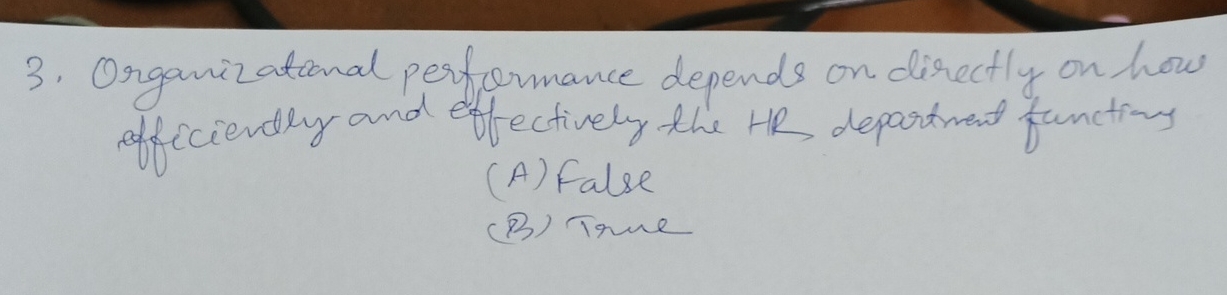 3. Organizational performance depends on directly on how
efficiently and effectively the HR department functions
(A) False
(B) True